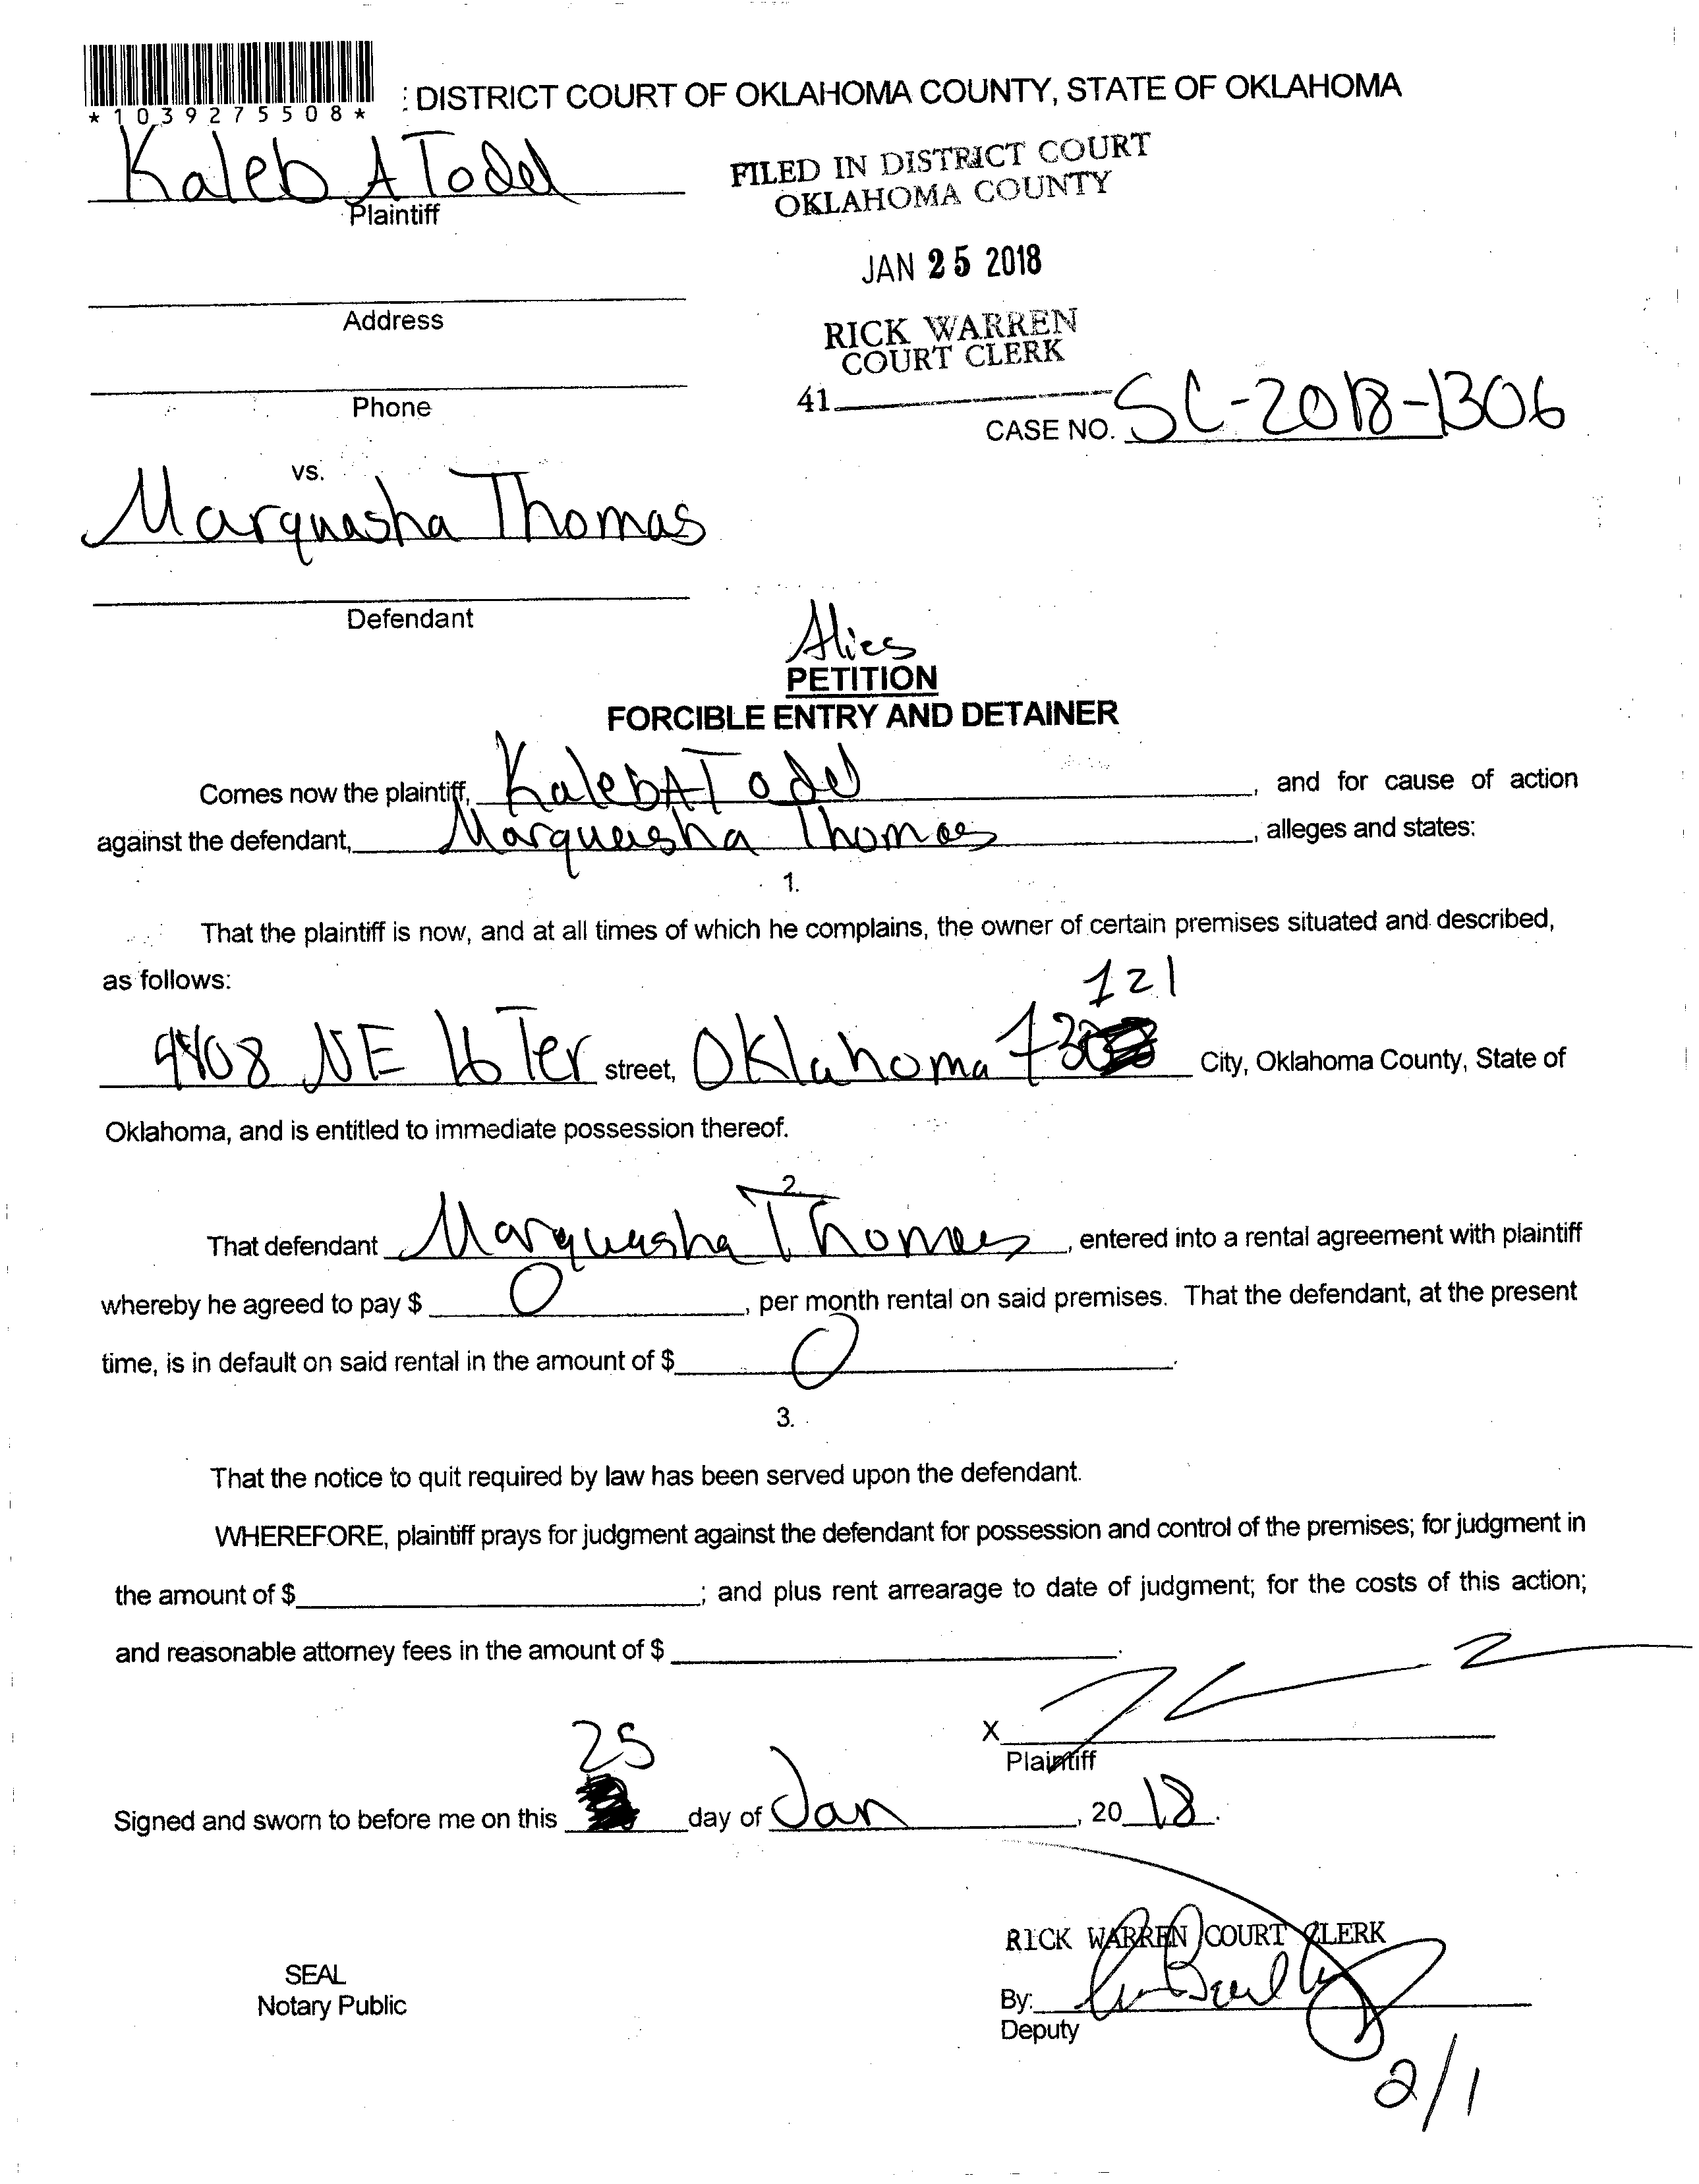 *1039275508*
: DISTRICT COURT OF OKLAHOMA COUNTY, STATE OF OKLAHOMA
Kaleb A Todd
Plaintiff
FILED IN DISTRICT COURT
OKLAHOMA COUNTY
JAN 25 2018
RICK WARREN
COURT CLERK
41
Address
Phone
CASE NO. SC-2018-1306
vs.
Marquasha Thomas
Defendant
Alies
PETITION
FORCIBLE ENTRY AND DETAINER
Comes now the plaintiff, Kaleb A Todd, and for cause of action
against the defendant, Marqueisha Thomas, alleges and states:
1.
That the plaintiff is now, and at all times of which he complains, the owner of certain premises situated and described,
as follows:
121
NE 16 Ter street, Oklahoma 73 City, Oklahoma County, State of
Oklahoma, and is entitled to immediate possession thereof.
2.
That defendant Marquasha Thomas, entered into a rental agreement with plaintiff
whereby he agreed to pay $ 0, per month rental on said premises. That the defendant, at the present
time, is in default on said rental in the amount of $ 0.
3.
That the notice to quit required by law has been served upon the defendant.
WHEREFORE, plaintiff prays for judgment against the defendant for possession and control of the premises; for judgment in
the amount of $; and plus rent arrearage to date of judgment; for the costs of this action;
and reasonable attorney fees in the amount of $.
X
Plaintiff
25
Signed and sworn to before me on this day of Jan, 20 18.
RICK WARREN COURT CLERK
SEAL
Notary Public
By:
Deputy
2/1